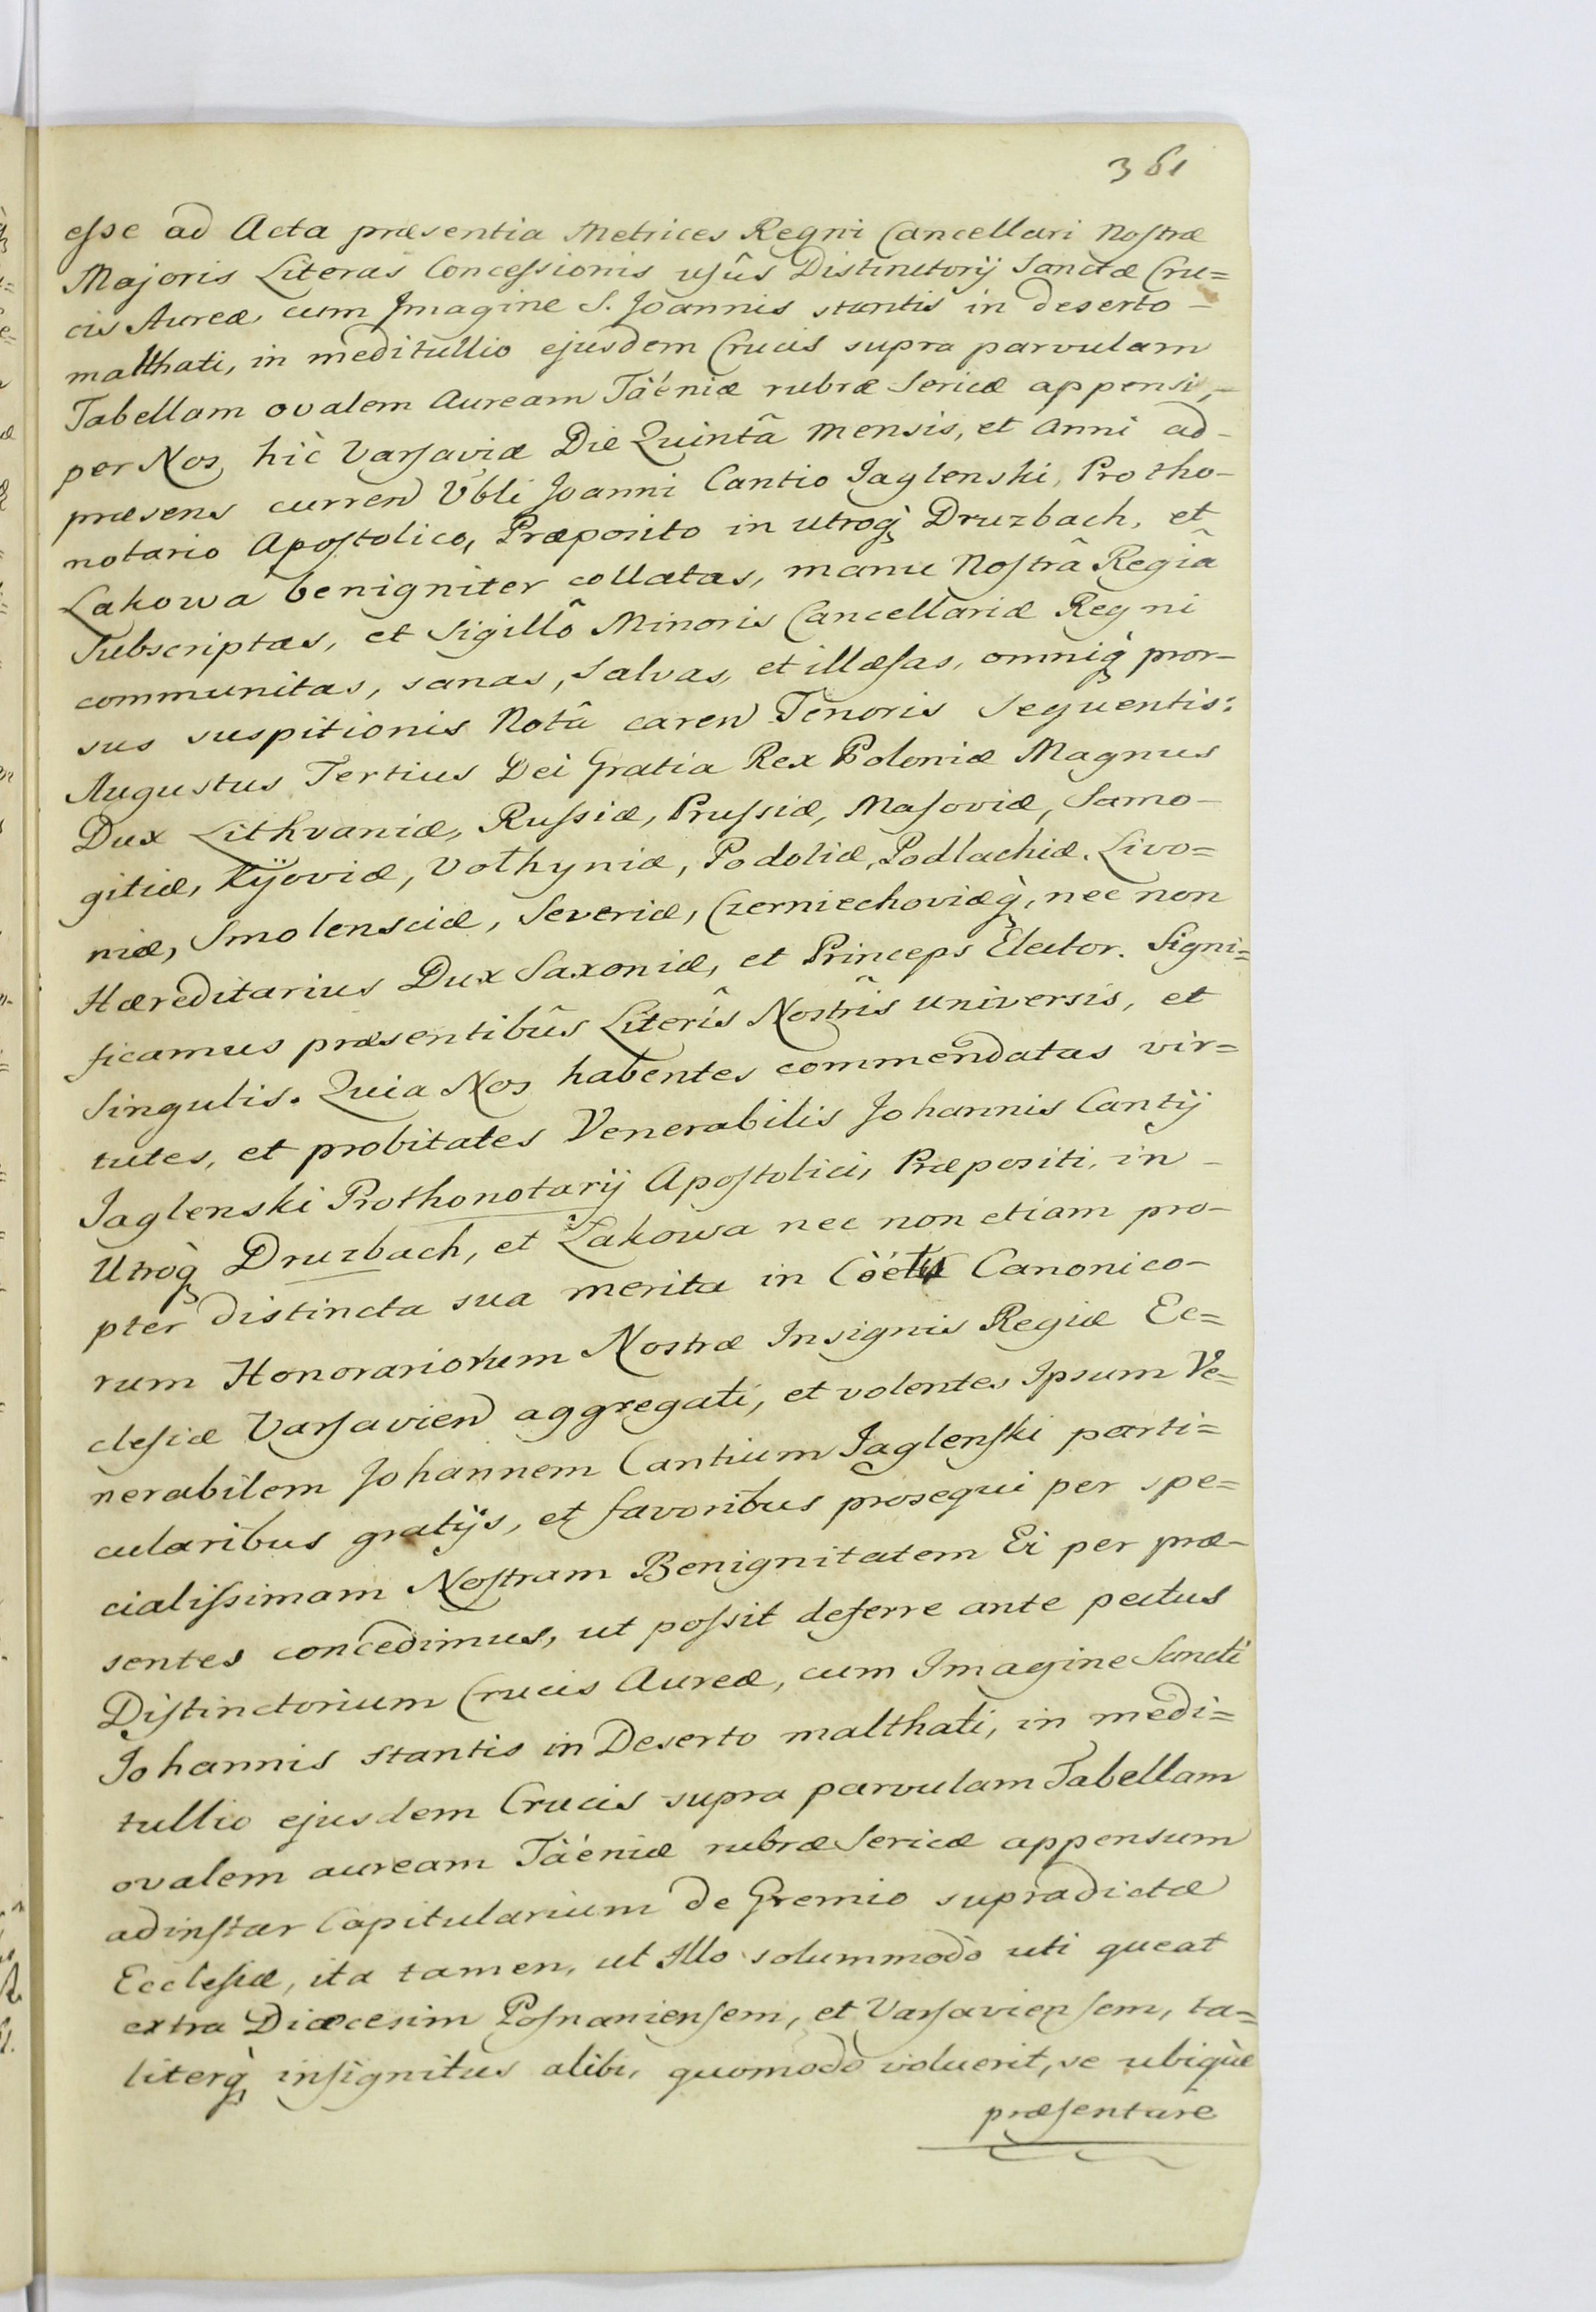 361
esse ad Acta præsentia Metrices Regni Cancellari Nostræ
Majoris Literas Concessionis usûs Distinctorij Sanctæ Cru=
cis Aureæ, cum Imagine S. Joannis stantis in deserto -
malthati, in meditullio ejusdem Crucis supra parvulam
Tabellam ovalem Auream Täéniæ rubræ Sericæ appensi, -
per Nos, hìc Varsaviæ Die Quintâ mensis, et Anni ad-
præsens curren Vbli Joanni Cantio Jaglenski, Protho-
notario Apostolico, Præposito in utroq̀ Druzbach, et
Lakowa benigniter collatas, manu Nostrâ Regiâ
Subscriptas, et Sigillô Minoris Cancellariæ Regni
communitas, sanas, salvas, et illæsas, omniq̀ pror-
sus suspitionis Notâ caren Tenoris Sequentis:
Augustus Tertius Dei Gratia Rex Poloniæ Magnus
Dux Lithvaniæ, Russiæ, Prussiæ, Masoviæ, Samo-
gitiæ, Kÿoviæ, Volhyniæ, Podoliæ, Podlachiæ, Livo=
niæ, Smolensciæ, Severiæ, Czerniechoviæq̀, nec non
Hæreditarius Dux Saxoniæ, et Princeps Elector. Signi=
ficamus præsentibûs Literîs Nostrîs universis, et
Singulis. Quia Nos habentes commendatas vir=
tutes, et probitates Venerabilis Johannis Cantij
Jaglenski Prothonotarij Apostolici, Præpositi, in -
Utroq̀ Druzbach, et Lakowa nec non etiam pro-
pter distincta sua merita in Cöétu Canonico-
rum Honorariorum Nostræ Insignis Regiæ Ec=
clesiæ Varsavien aggregati, et volentes Ipsum Ve=
nerabilem Johannem Cantium Jaglenski parti=
cularibus gratijs, et favoribus prosequi per spe=
cialissimam Nostram Benignitatem Ei per præ-
sentes concedimus, ut possit deferre ante pectus
Distinctorium Crucis Aureæ, cum Imagine Sancti
Johannis stantis in Deserto malthati, in medi=
tullio ejusdem Crucis supra parvulam Tabellam
ovalem auream Täéniæ rubræ Sericæ appensum
adinstar Capitularium de Gremio supradictæ
Ecclesiæ, ita tamen, ut Illo solummodò uti queat
extra Diæcesim Posnaniensem, et Varsaviensem, ta=
literq̀ insignitus alibi, quomodò voluerit, se ubiqùe
præsentare